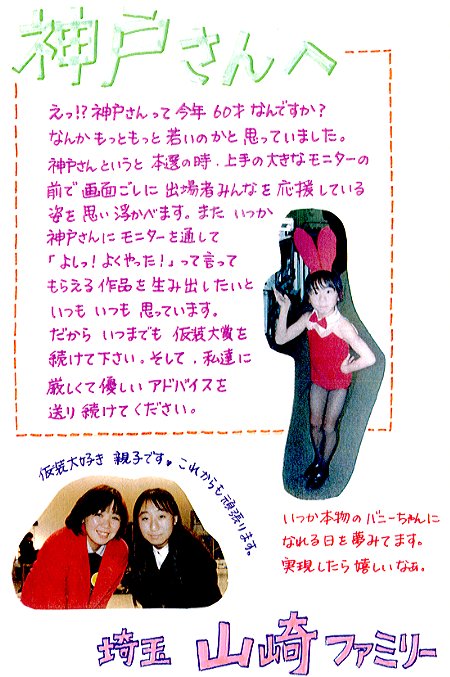 神戸さんへ
えっ!?神戸さんって今年60才なんですか?
なんかもっともっと若いのかと思っていました。
神戸さんというと本選の時、上手の大きなモニターの
前で画面ごしに出場者みんなを応援している
姿を思い浮かべます。またいつか
神戸さんにモニターを通して
「よしっ!よくやった!」って言って
もらえる作品を生み出したいと
いつもいつも思っています。
だからいつまでも仮装大賞を
続けて下さい。そして、私達に
厳しくて優しいアドバイスを
送り続けてください。
仮装大好き 親子です♥これからも頑張ります。
いつか本物のバニーちゃんに
なれる日を夢みてます。
実現したら嬉しいなぁ。
埼玉 山崎ファミリー